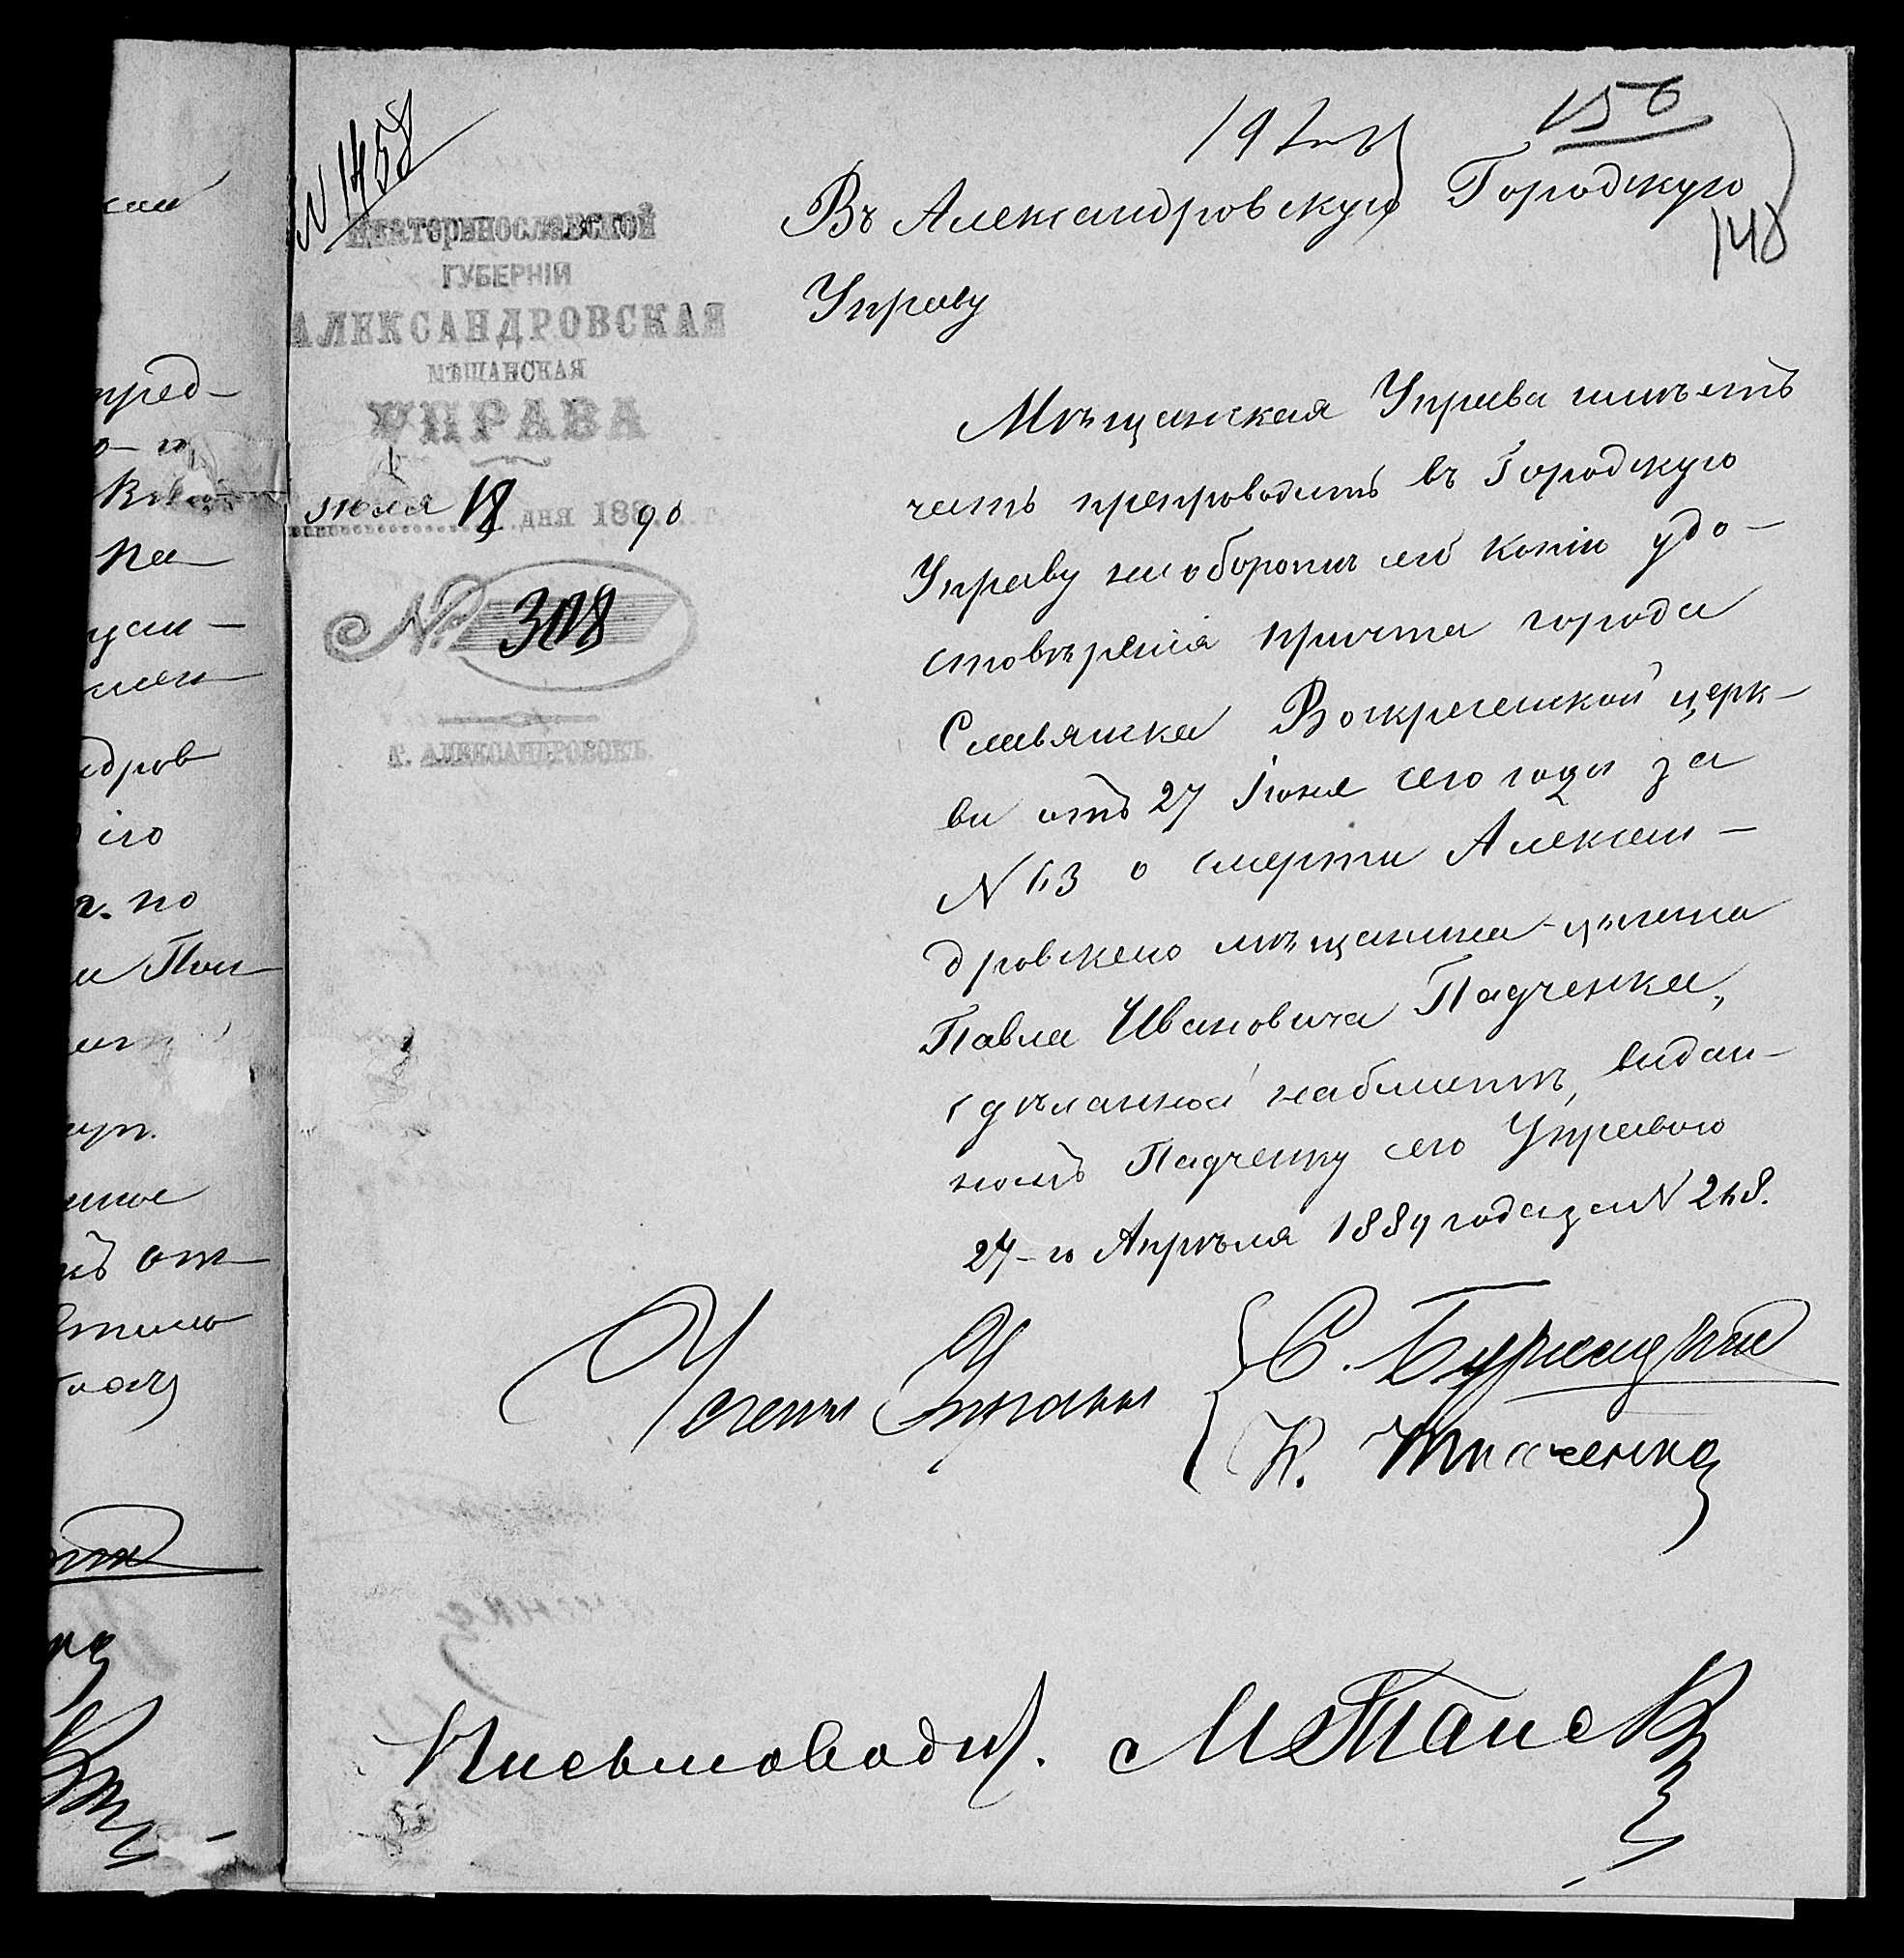 156
148
№ 1458
Екатеринославской
ГУБЕРНІИ
АЛЕКСАНДРОВСКАЯ
МѢЩАНСКАЯ
УПРАВА
Іюля 18 дня 1890 г.
№ 308
Г. АЛЕКСАНДРОВСКЪ.
Въ Александровскую Городскую
Управу
Мѣщанская Управа имѣетъ
честь препроводить въ Городскую
Управу на оборотѣ сего копію удо-
стовѣренія причта города
Славянска Воскресенской церк-
ви отъ 27 Іюня сего года за
N о смерти Алексан-
дровскаго мѣщанина-цыгана
Павла Ивановича Падченка,
сдѣланной на билетѣ, видан-
номъ Падченку сею Управою
27-го Апрѣля 1889 года за N 248.
Члены Управы
С.
К. Ткаченко
Письмовод.
пред-
ндров
его
по